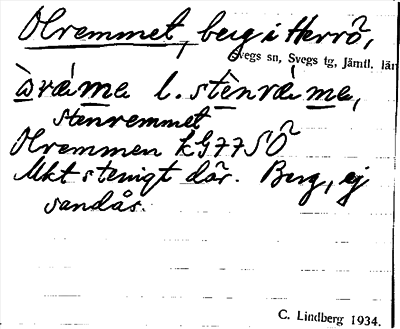 Olremmet, berg i Herrö,
Svegs sn, Svegs tg, Jämtl. län
l. stenrǽme,
stenremmet
Olremmen kG77SÖ
Mkt stenigt där. Berg, ej
sandås.
C. Lindberg 1934.